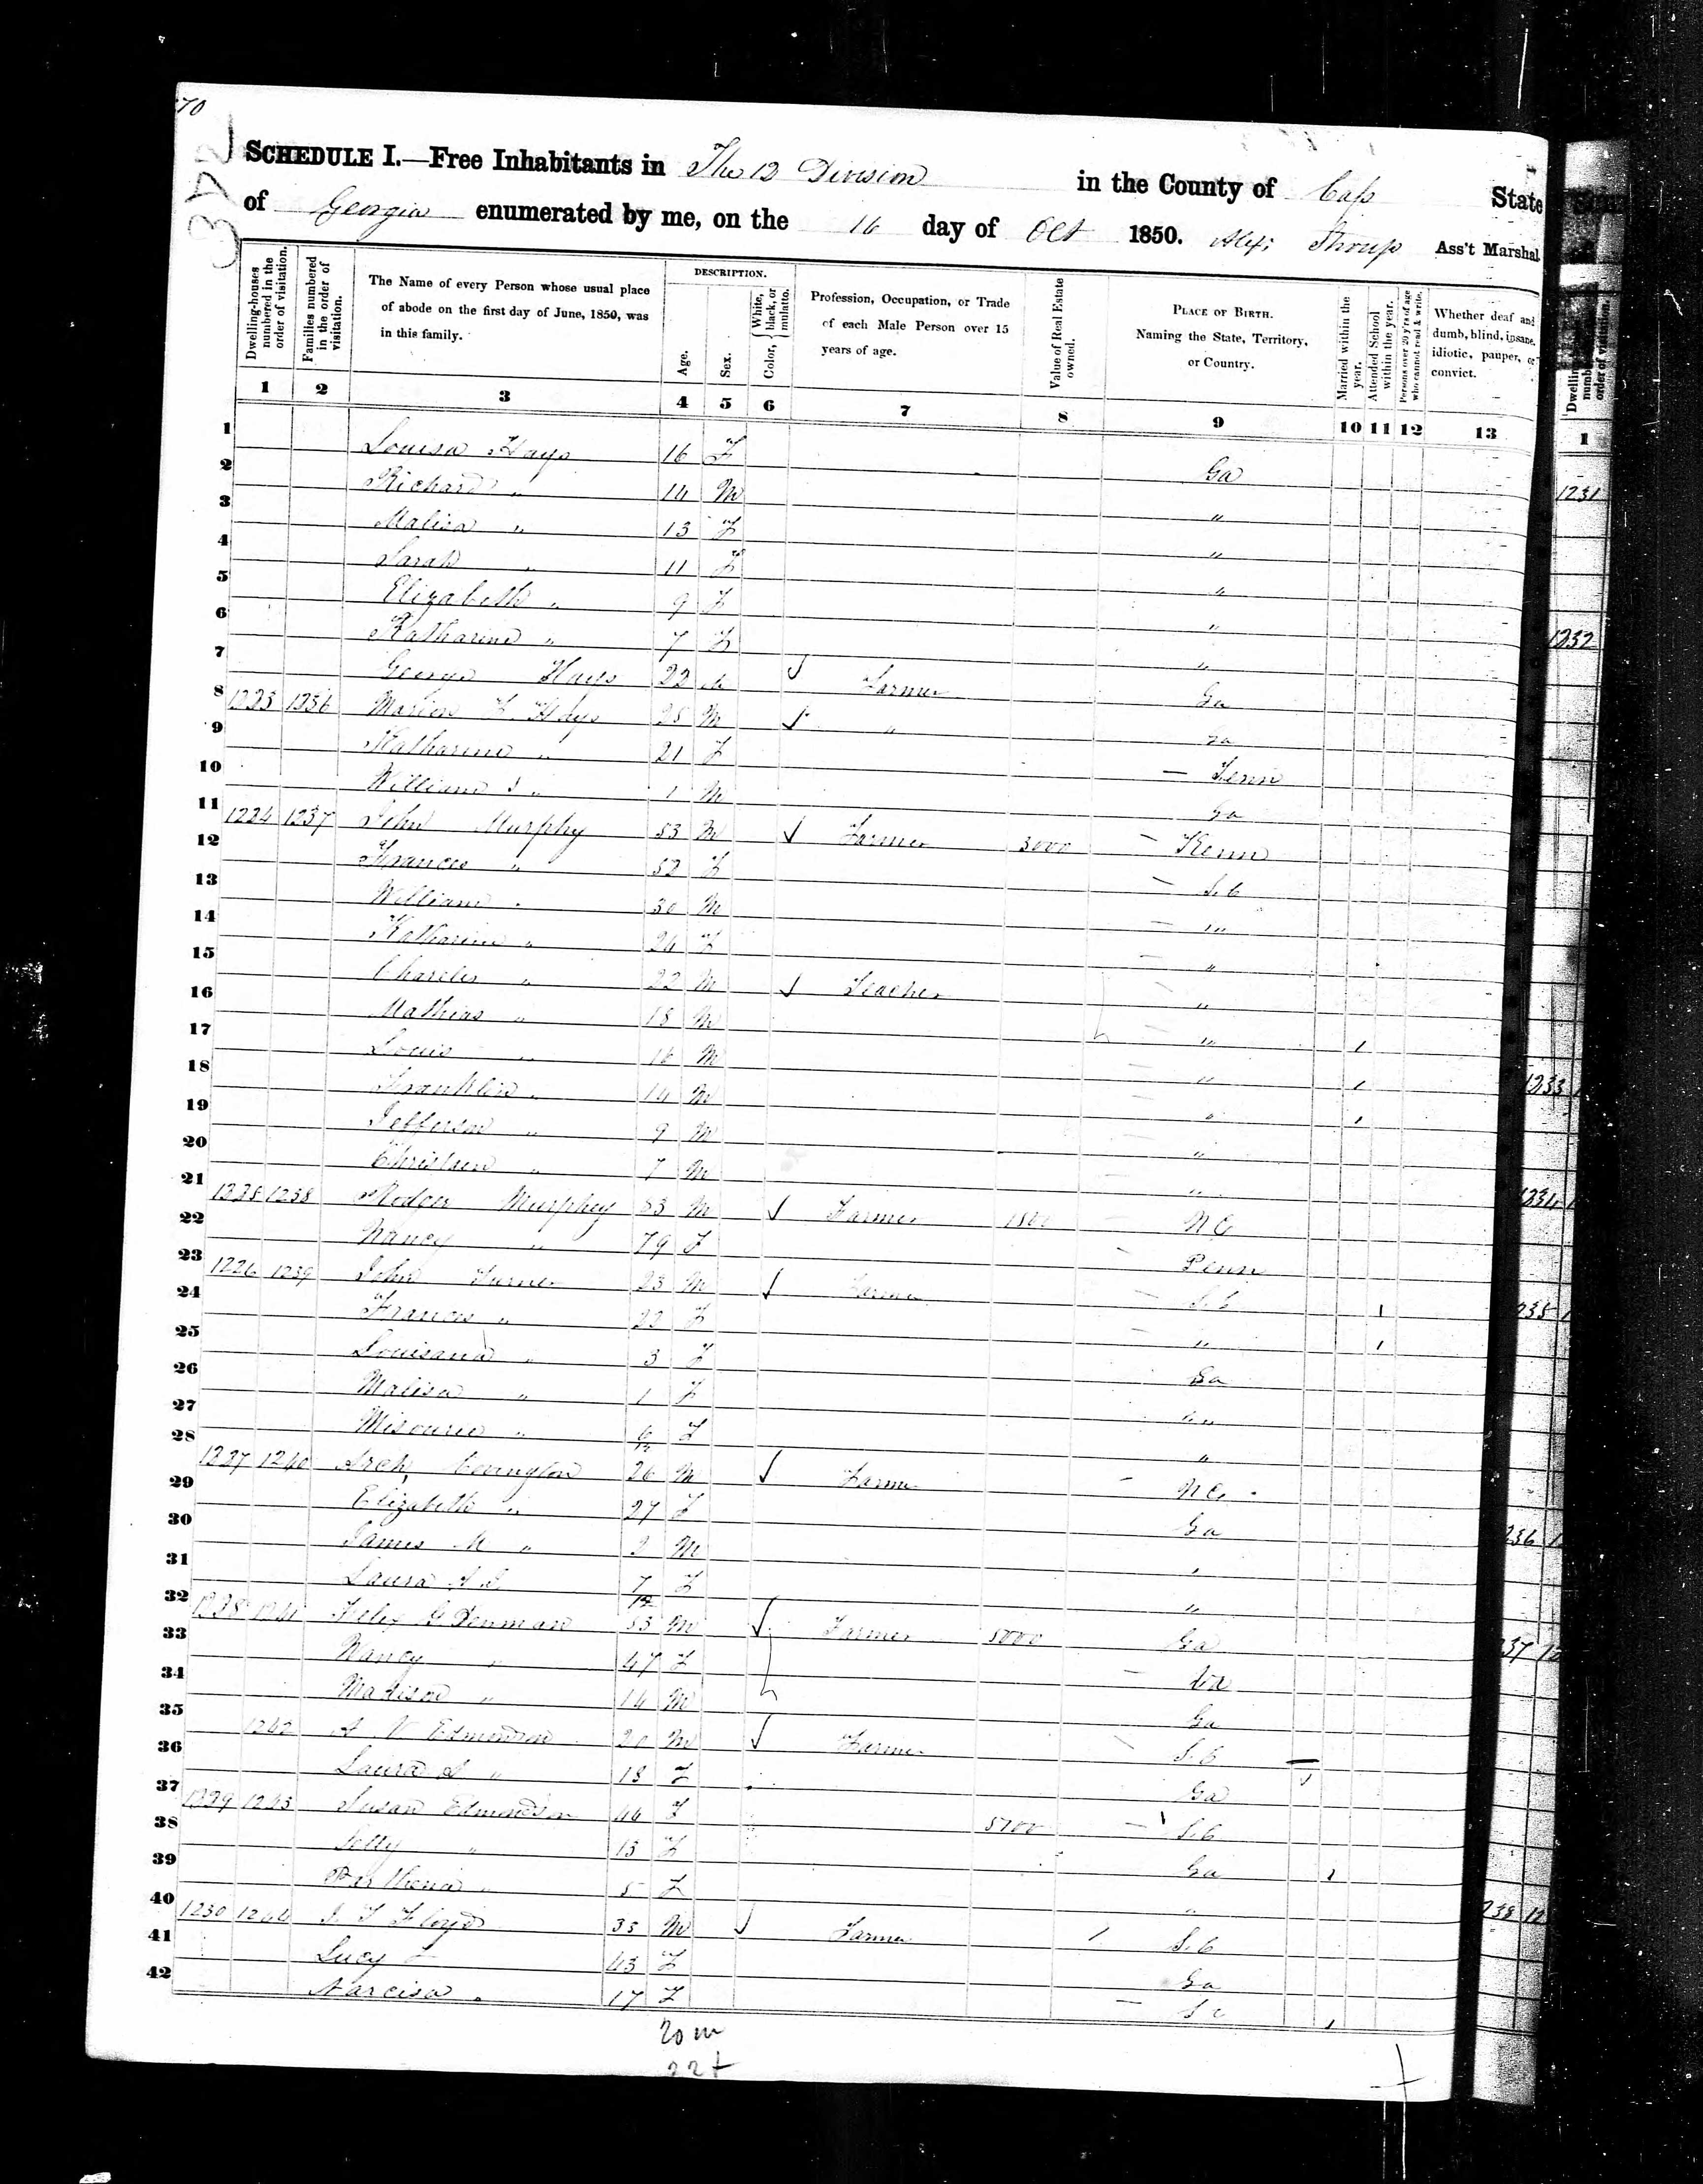 70
SCHEDULE I.—Free Inhabitants in The 12 Division in the County of Cass State
of Georgia enumerated by me, on the 16 day of Oct 1850. Ass't Marshal
Dwelling-houses numbered in the order of visitation. Families numbered in the order of visitation. The Name of every Person whose usual place of abode on the first day of June, 1850, was in this family. DESCRIPTION. Age. Sex. Color, { White, black, or mulatto. Profession, Occupation, or Trade of each Male Person over 15 years of age. Value of Real Estate owned. PLACE OF BIRTH. Naming the State, Territory, or Country. Married within the year. Attended School within the year. Persons over 20 y'rs of age who cannot read & write. Whether deaf and dumb, blind, insane, idiotic, pauper, or convict.
1 2 3 4 5 6 7 8 9 10 11 12 13
1 Louisa Hays 16 F Ga
2 Richard " 14 M "
3 Malisa " 13 F "
4 Sarah " 11 F "
5 Elizabeth " 9 F "
6 Katharine " 7 F "
7 George Hays 22 M Farmer Ga
8 1223 1236 F. Hays 28 M " Ga
9 Katharine " 21 F Tenn
10 William " 1 M Ga
11 1224 1237 John Murphy 53 M Farmer 3000
12 Frances " 52 F S.C
13 William " 30 M "
14 Katharine " 24 F "
15 Charles " 22 M Teacher "
16 Mathias " 18 M " 1
17 Louis " 16 M " 1
18 Franklin " 14 M " 1
19 Jefferson " 9 M "
20 " 7 M "
21 1225 1238 Murphey 83 M Farmer 1800 N C
22 Nancy " 79 F Penn
23 1226 1239 John Turner 23 M Farmer S.C 1
24 Frances " 22 F " 1
25 Louisana " 3 F Ga
26 Malisa " 1 F "
27 Misourie " F "
28 1227 1240 Arch Covington 26 M Farmer N C
29 Elizabeth " 27 F Ga
30 James M " 2 M "
31 Laura 7/12 F "
32 1228 1241 Felix G Denman 53 M Farmer 5000 Ga
33 Nancy " 47 F
34 Madison " 14 M Ga
35 1242 A V Edmondson 20 M Farmer S.C
36 Laura A " 18 F Ga
37 1229 1243 Susan Edmondson 44 F 5700 S.C
38 " 13 F Ga 1
39 Parthena " 5 F "
40 1230 1244 Floyd 35 M Farmer S.C
41 Lucy 43 F Ga
42 Narcisa " 17 F S C 1
20 m
22 f
Dwelling numb order of visitation.
1
1231
1232
1233
1234
235
236
237
238